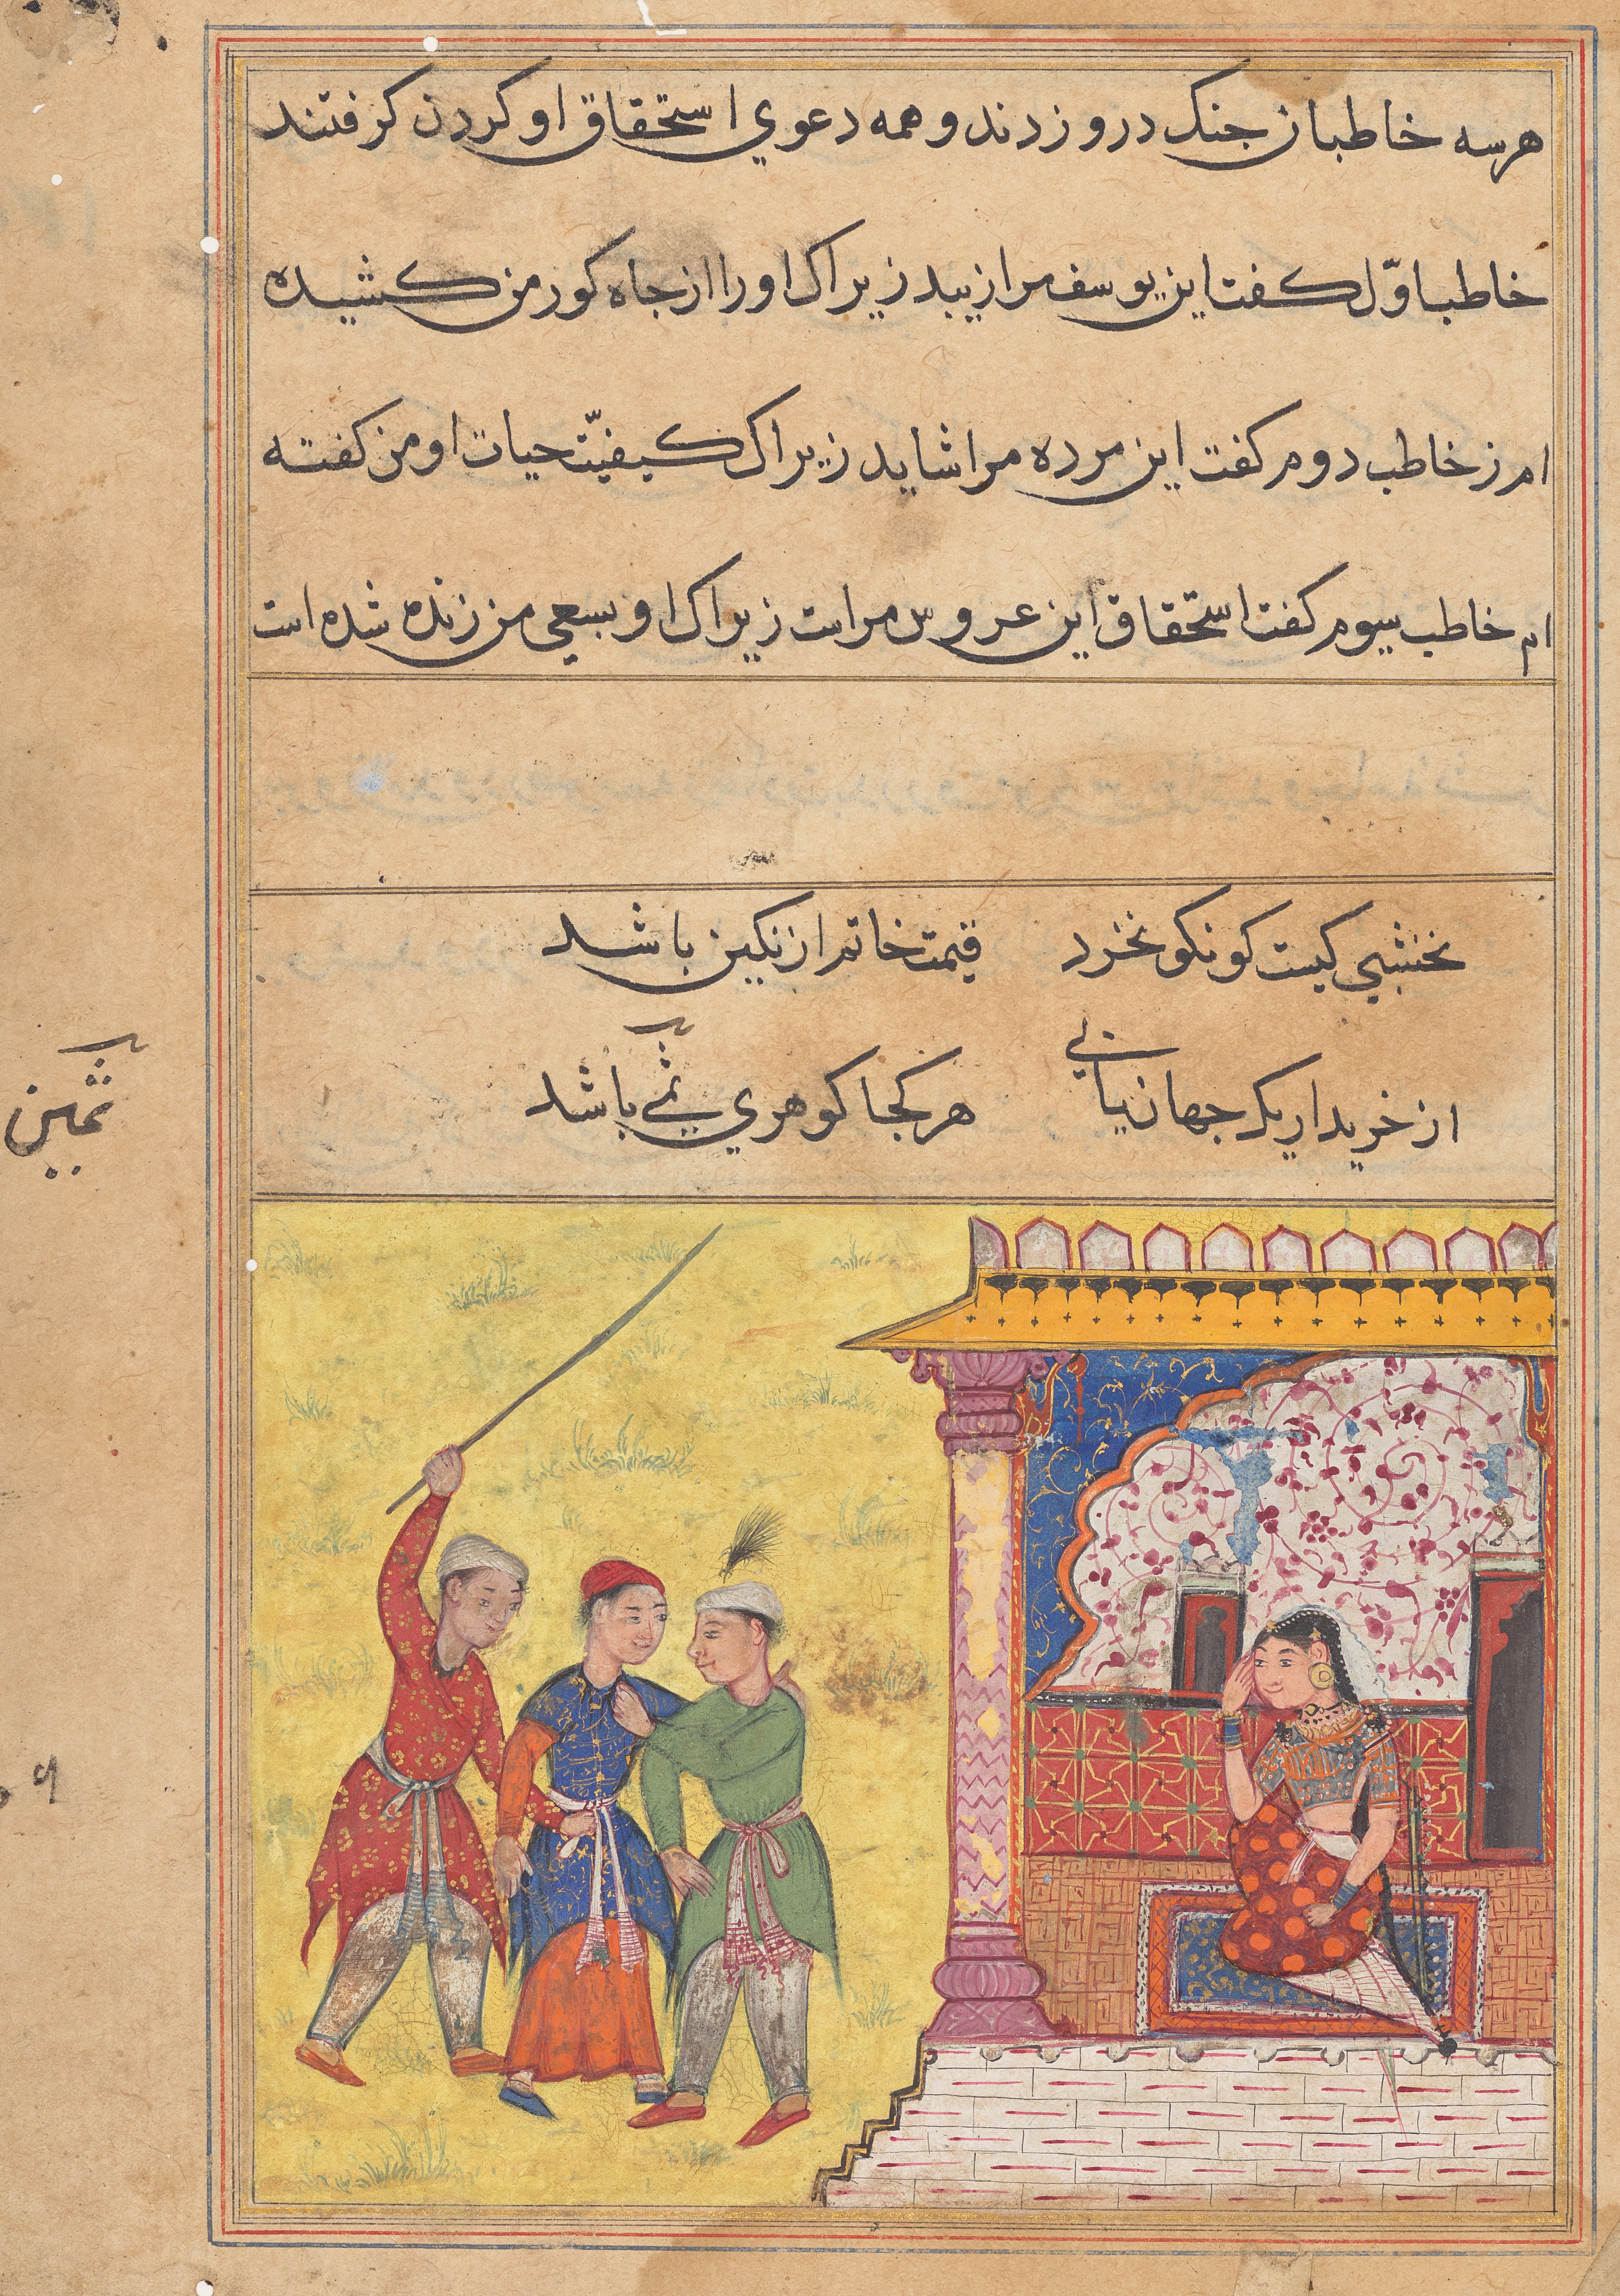 هر سه خاطبان جنک درو زدند و همه دعوي استحقاق او کردن کرفتند
خاطب اوّل کفت این یوسف مرا زیبد زیراک او را از جاه کور من کشیده
ام خاطب دوم کفت این مرده مرا شاید زیراک کیفیّت حیات او من کفته
ام خاطب سیوم کفت استحقاق این عروس مراست زیراک او بسعي من زنده شده است
نخشبي کیست کو نکو نخرد قیمت خاتم از نکین باشد
از خریدار یک جهان یابي هر کجا کوهري ثمین باشد
ثمین